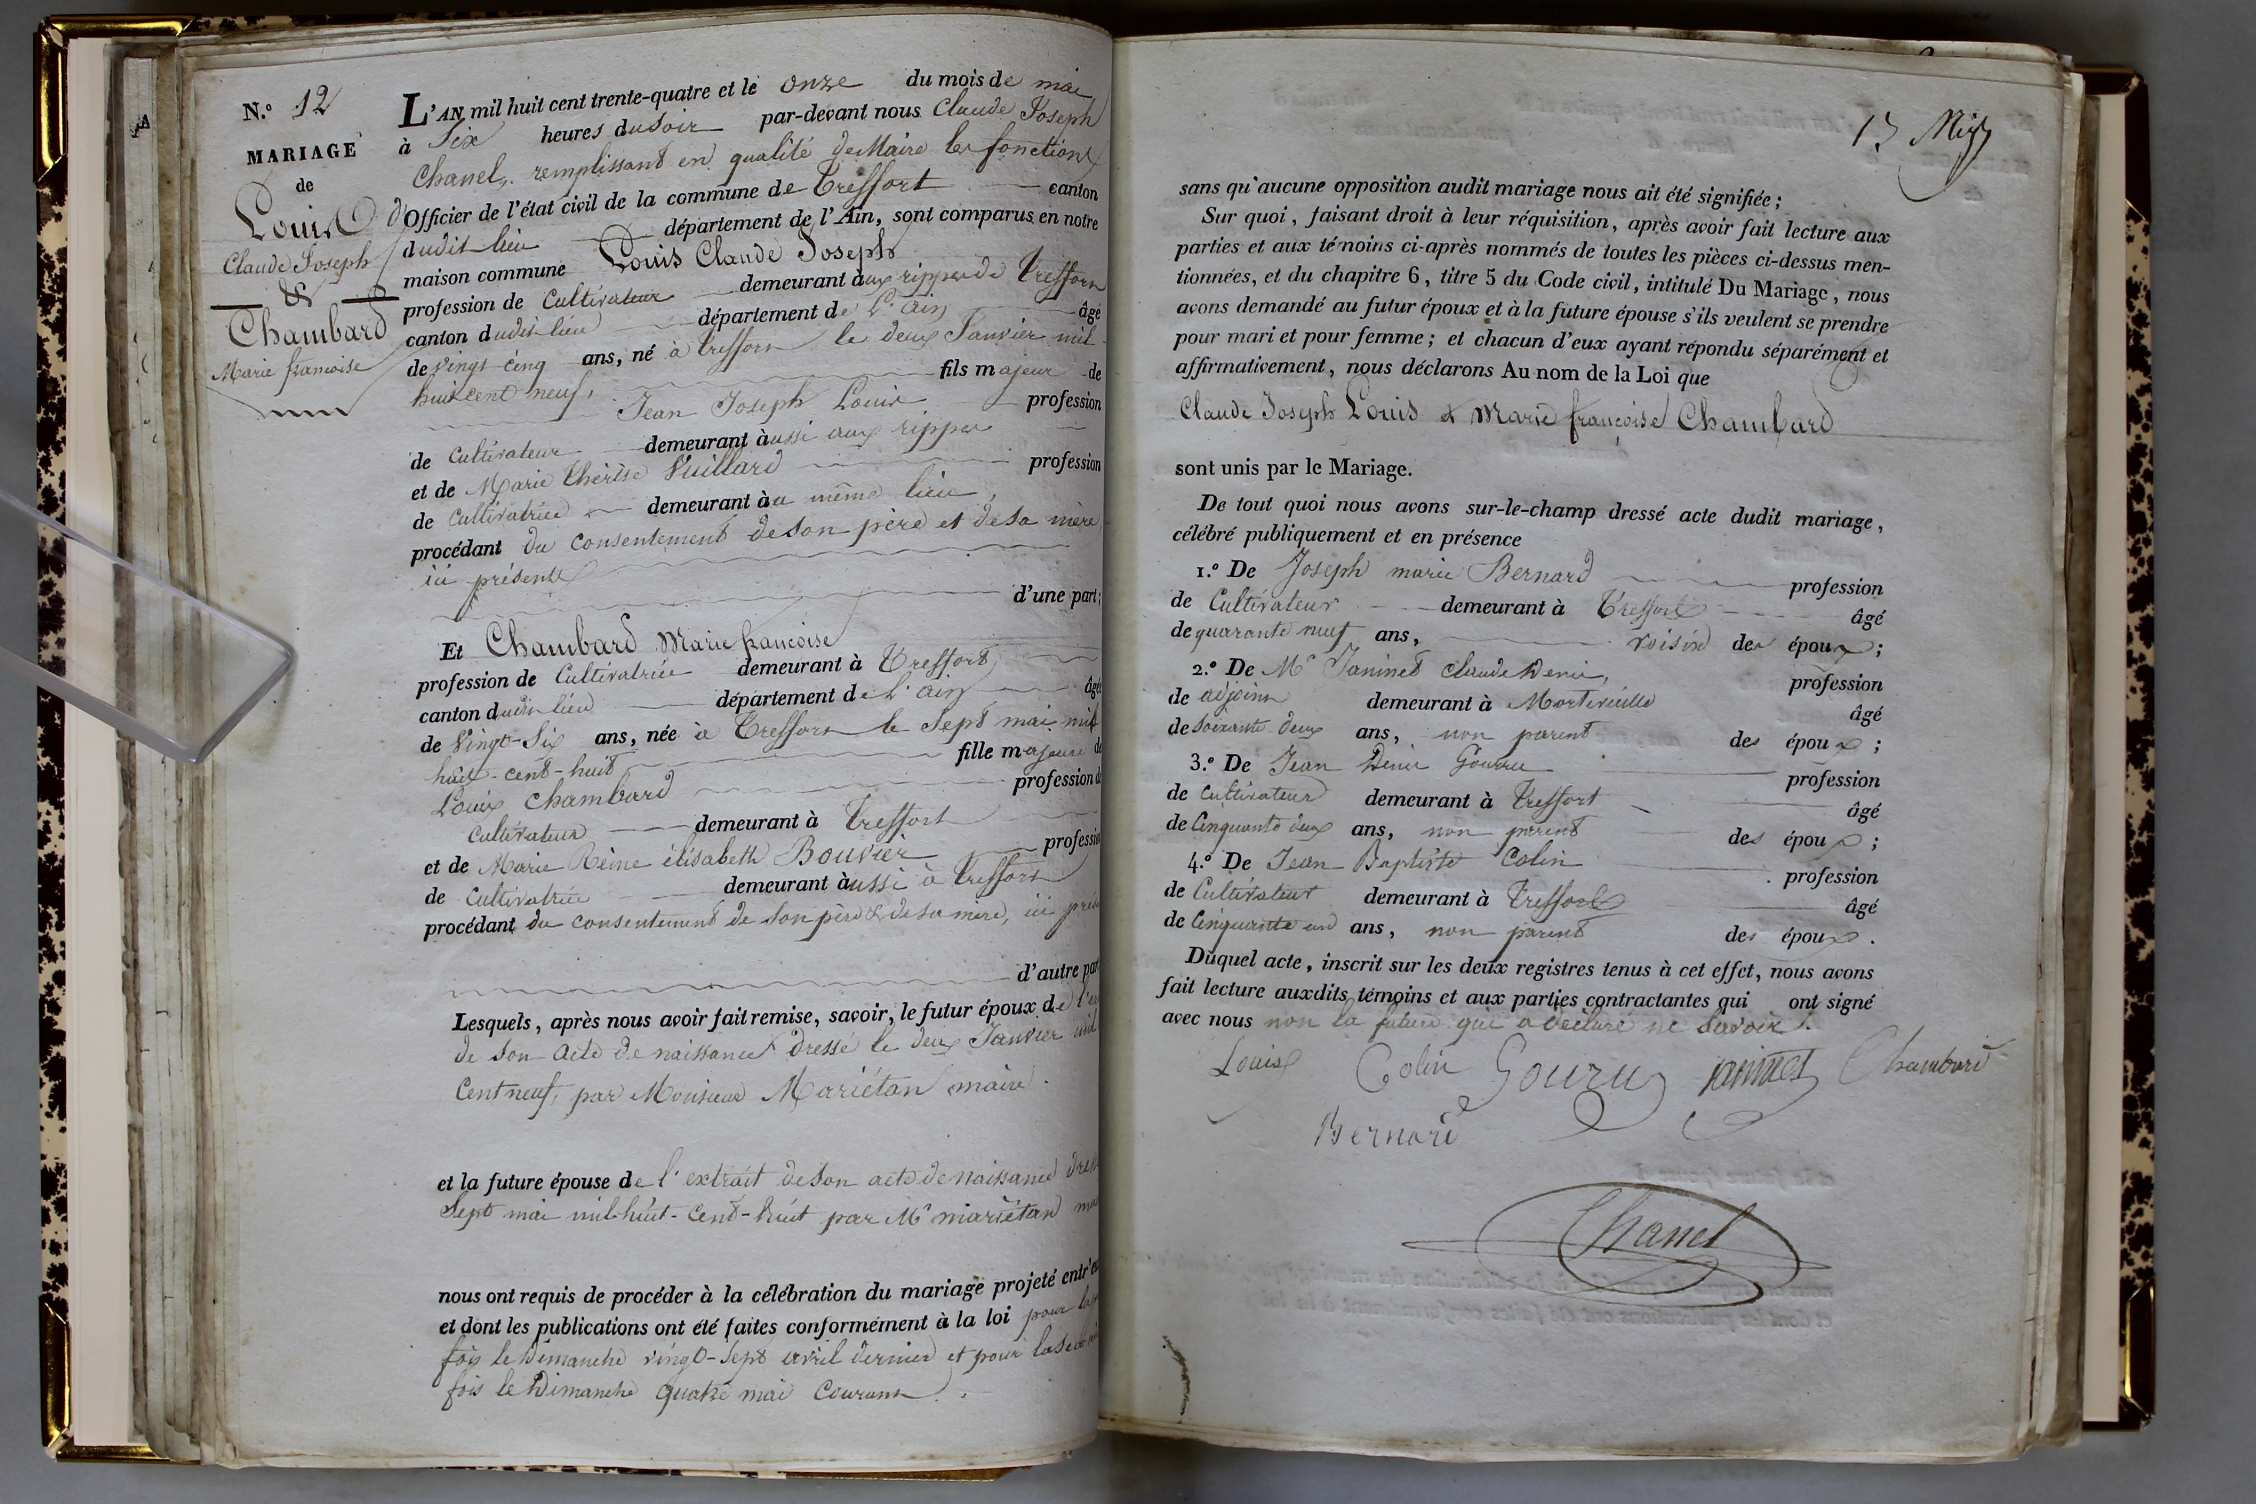 N.º 12
MARIAGE
de
Louis
Claude Joseph
&
Chambard
Marie françoise
L'AN mil huit cent trente-quatre et le onze du mois de mai
à Six heures du Soir par-devant nous Claude Joseph
Chanel, remplissant en qualité de Maire les fonctions
d'Officier de l'état civil de la commune de Treffort canton
dudit lieu département de l'Ain, sont comparus en notre
maison commune Louis Claude Joseph
profession de Cultivateur demeurant aux rippes de Treffort
canton dudit lieu département de L'ain âgé
de vingt-cinq ans, né à Treffort le deux Janvier mil
huit cent neuf, fils majeur de
Jean Joseph Louis profession
de Cultivateur demeurant àussi aux rippes
et de Marie Thérèse Vuillard profession
de Cultivatrice demeurant àu même lieu,
procédant du consentement de son père et de sa mère
ici présents
d'une part;
Et Chambard Marie françoise
profession de Cultivatrice demeurant à Treffort
canton dudit lieu département de L'ain âgée
de Vingt-Six ans, née à Treffort le Sept mai mil
huit-cent-huit fille majeure de
Louis Chambard profession de
Cultivateur demeurant à Treffort
et de Marie Reine élisabeth Bouvier profession
de Cultivatrice demeurant àussi à Treffort
procédant du consentement de son père & de sa mère, ici
d'autre part
Lesquels, après nous avoir fait remise, savoir, le futur époux de
de son acte de naissance dressé le deux Janvier mil
Cent neuf, par Monsieur Mariétan maire.
et la future épouse de l'extrait de son acte de naissance
Sept mai mil-huit-cent-huit par Mr mariétan
nous ont requis de procéder à la célébration du mariage projeté entr'eux
et dont les publications ont été faites conformément à la loi pour la
fois le dimanche vingt-Sept avril dernier et pour la
fois le Dimanche quatre mai Courant.
sans qu'aucune opposition audit mariage nous ait été signifiée;
Sur quoi, faisant droit à leur réquisition, après avoir fait lecture aux
parties et aux témoins ci-après nommés de toutes les pièces ci-dessus men-
tionnées, et du chapitre 6, titre 5 du Code civil, intitulé Du Mariage, nous
avons demandé au futur époux et à la future épouse s'ils veulent se prendre
pour mari et pour femme; et chacun d'eux ayant répondu séparément et
affirmativement, nous déclarons Au nom de la Loi que
Claude Joseph Louis & Marie françoise Chambard
sont unis par le Mariage.
De tout quoi nous avons sur-le-champ dressé acte dudit mariage,
célébré publiquement et en présence
1.º De Joseph marie Bernard profession
de Cultivateur demeurant à Treffort âgé
de quarante neuf ans, voisin des époux;
2.º De Mr Janinet Claude Denis, profession
de adjoint demeurant à Montevieille âgé
de soixante deux ans, non parent des époux;
3.º De Jean Denis Gouru profession
de Cultivateur demeurant à Treffort âgé
de Cinquante deux ans, non parent des époux;
4.º De Jean Baptiste Colin profession
de Cultivateur demeurant à Treffort âgé
de Cinquante un ans, non parent des époux.
Duquel acte, inscrit sur les deux registres tenus à cet effet, nous avons
fait lecture auxdits témoins et aux parties contractantes qui ont signé
avec nous non la future qui a déclaré ne savoir.
Louis Colin Gouru Janinet Chambard
Bernard
Chanel